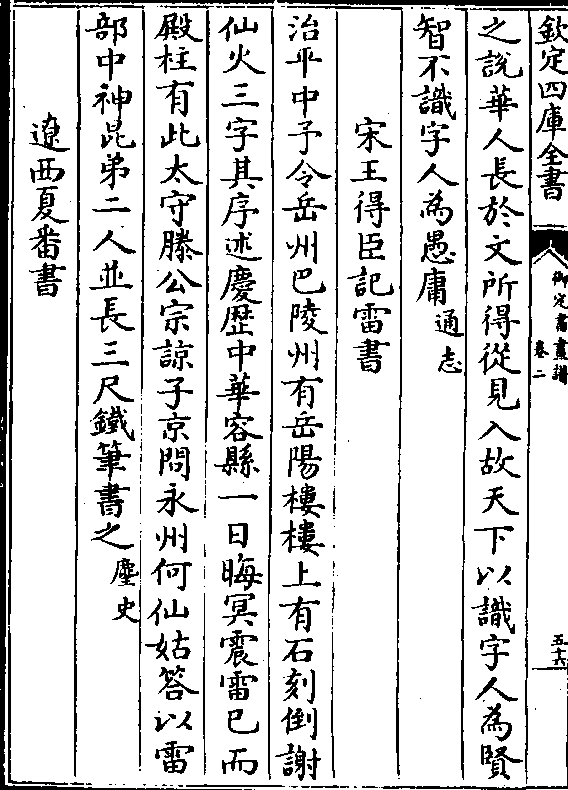 欽定四庫全書
御定書畫譜
卷二
五六
之說華人長於文所得從見入故天下以識字人為賢
智不識字人為愚庸通志
宋王得臣記雷書
治平中予令岳州巴陵州有岳陽樓樓上有石刻倒謝
仙火三字其序述慶歷中華容縣一日晦冥震雷已而
殿柱有此太守滕公宗諒子京問永州何仙姑答以雷
部中神昆弟二人並長三尺鐵筆書之麈史
遼西夏番書